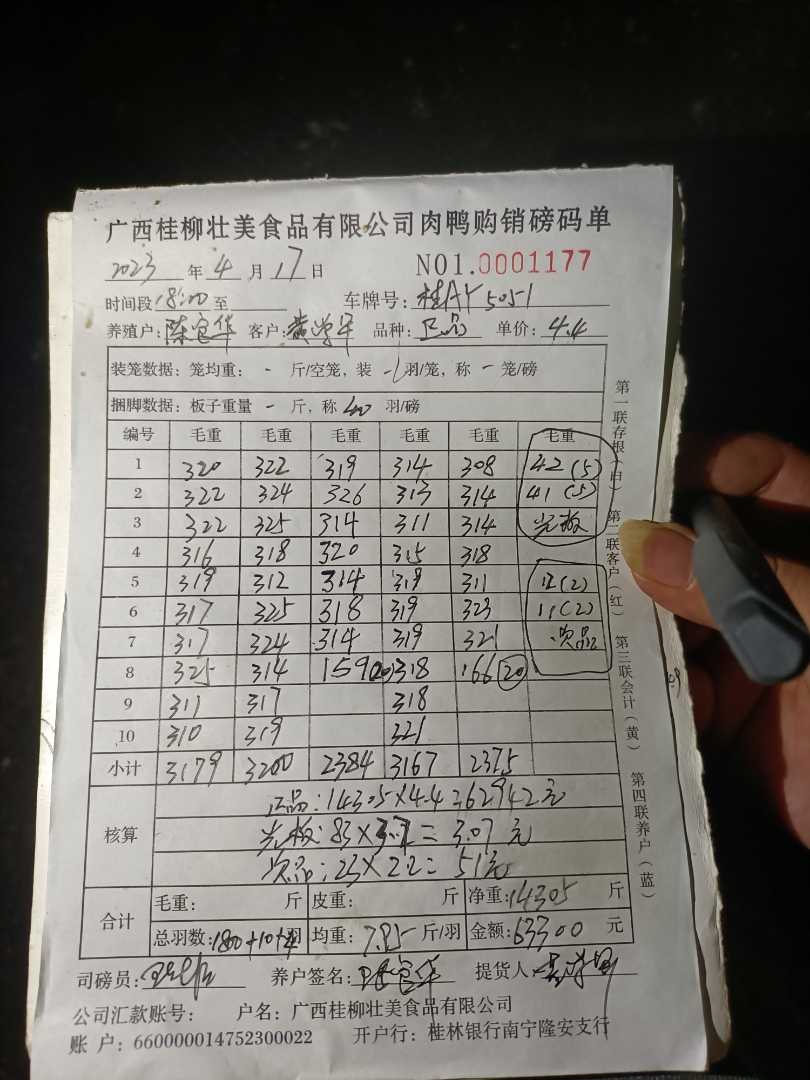 广西桂柳壮美食品有限公司肉鸭购销磅码单
2023 年 4 月 17 日 NO1.0001177
时间段 18:00 至 车牌号: 桂AY5051
养殖户: 陈宝华 客户: 黄 品种: 正品 单价: 4.4
装笼数据: 笼均重: - 斤/空笼, 装 - 羽/笼, 称 - 笼/磅
捆脚数据: 板子重量 - 斤, 称 40 羽/磅
编号 毛重 毛重 毛重 毛重 毛重 毛重
1 320 322 319 314 308 42(5)
2 322 324 326 313 314 41(5)
3 322 325 314 311 314 光板
4 316 318 320 315 318
5 319 312 314 319 311 12(2)
6 317 325 318 319 323 11(2)
7 317 324 314 319 321 次品
8 325 314 159(20) 318 166(20)
9 311 317 318
10 310 319 321
小计 3179 3200 2384 3167 2375
核算
正品: 14305×4.4 362942元
光板: 83×3.7=3.07元
次品: 23×2.2=51元
合计
毛重: 斤 皮重: 斤 净重: 14305 斤
总羽数: 1800+10+4 羽 均重: 7.95 斤/羽 金额: 63300 元
司磅员: 养户签名: 陈宝华 提货人:
公司汇款账号: 户名: 广西桂柳壮美食品有限公司
账 户: 660000014752300022 开户行: 桂林银行南宁隆安支行
第一联存根(白) 第二联客户(红) 第三联会计(黄) 第四联养户(蓝)